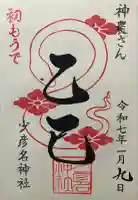 神農さん
初もうで
乙巳
令和七年一月九日
少彦名神社